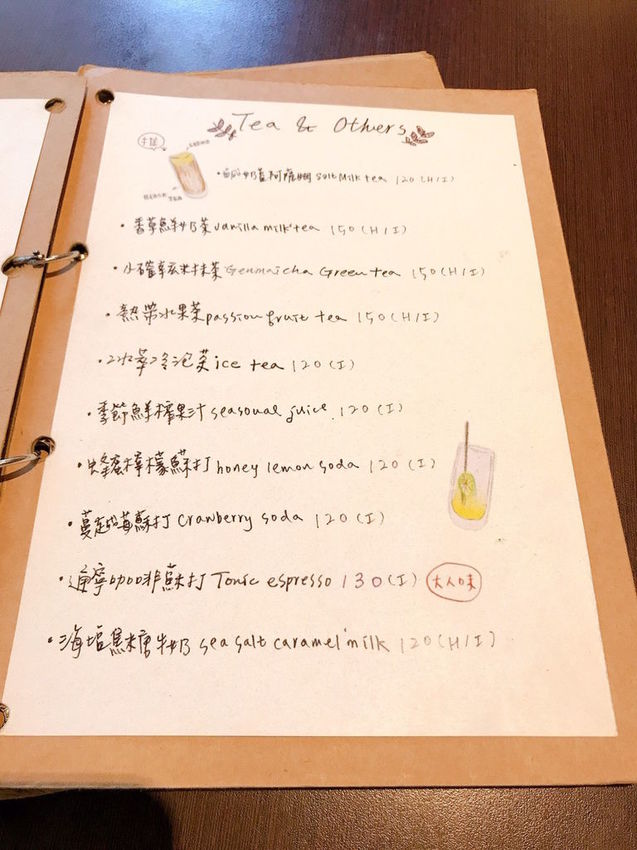 Tea & Others
手搖
BLACK TEA
Salt Milk tea 120 (H/I)
•香草鮮奶茶 vanilla milk tea 150 (H/I)
Genmaicha Green tea 150 (H/I)
•熱帶水果茶 passion fruit tea 150 (H/I)
•冰萃冷泡茶 ice tea 120 (I)
•季節鮮榨果汁 seasonal juice 120 (I)
•蜂蜜檸檬蘇打 honey lemon soda 120 (I)
•蔓越莓蘇打 Cranberry soda 120 (I)
•通寧咖啡蘇打 Tonic espresso 130 (I) 大人味
•海塩焦糖牛奶 sea salt caramel milk 120 (H/I)